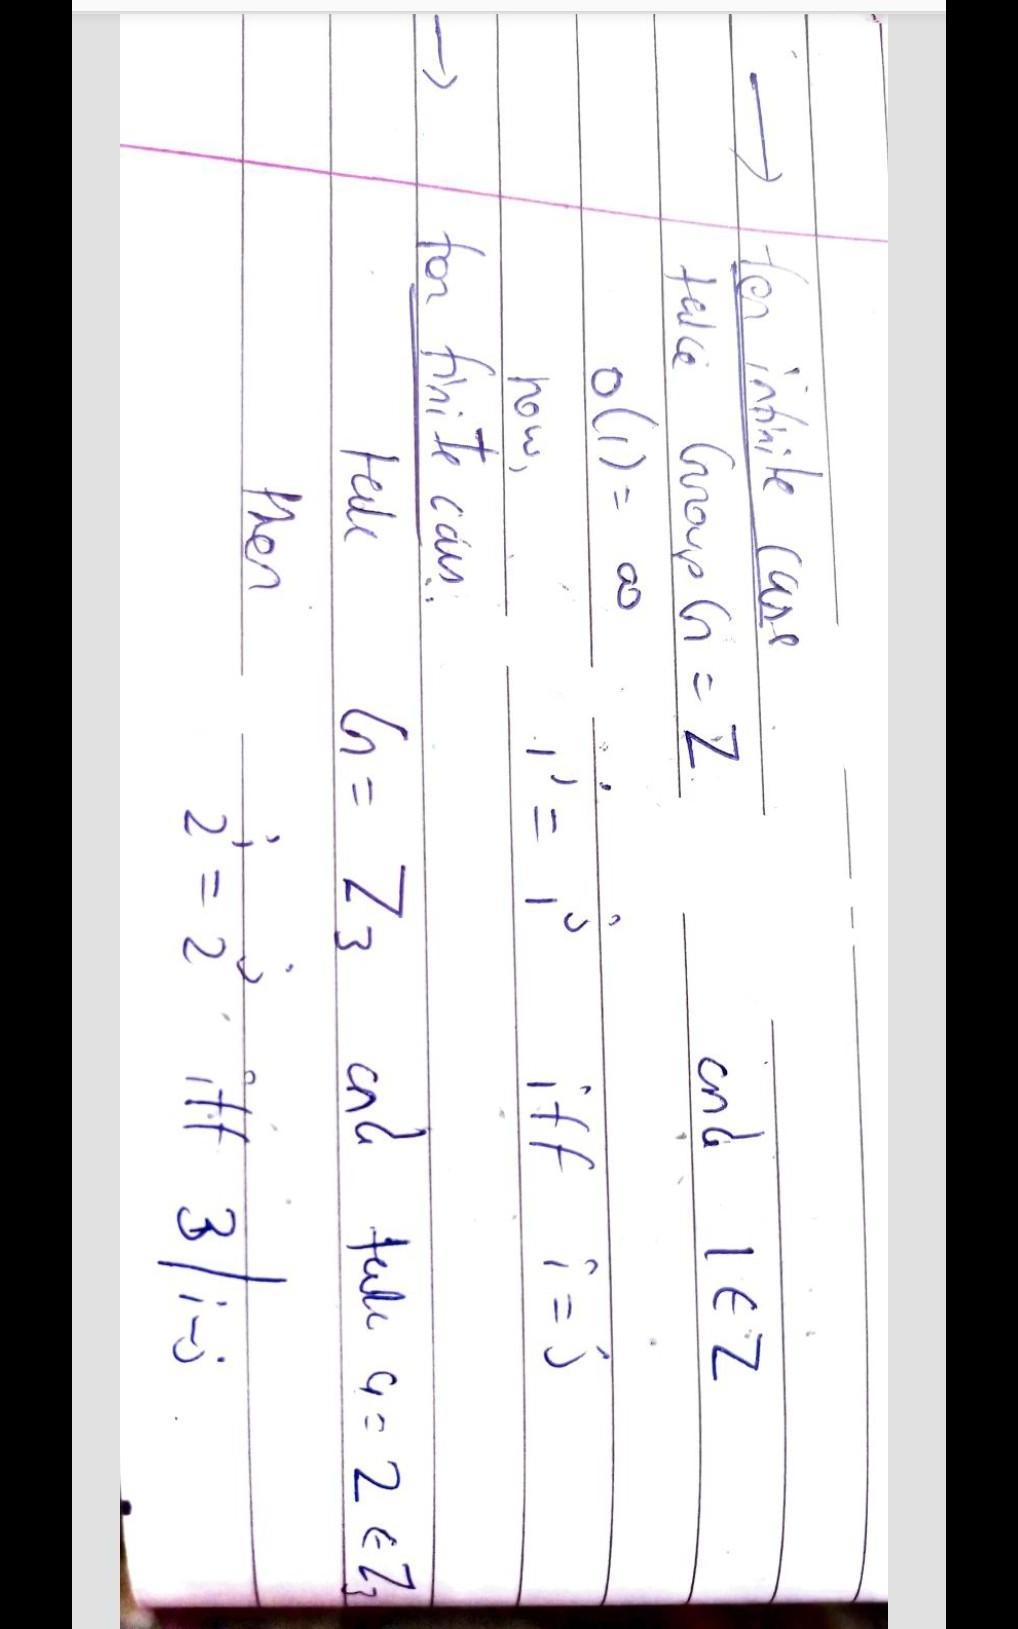 → for infinite case
take Group G = Z and 1 ∈ Z
o(1) = ∞
now, 1^i = 1^j iff i = j
→ for finite case:
take G = Z_3 and take a = 2 ∈ Z_3
then
2^i = 2^j iff 3/i-j